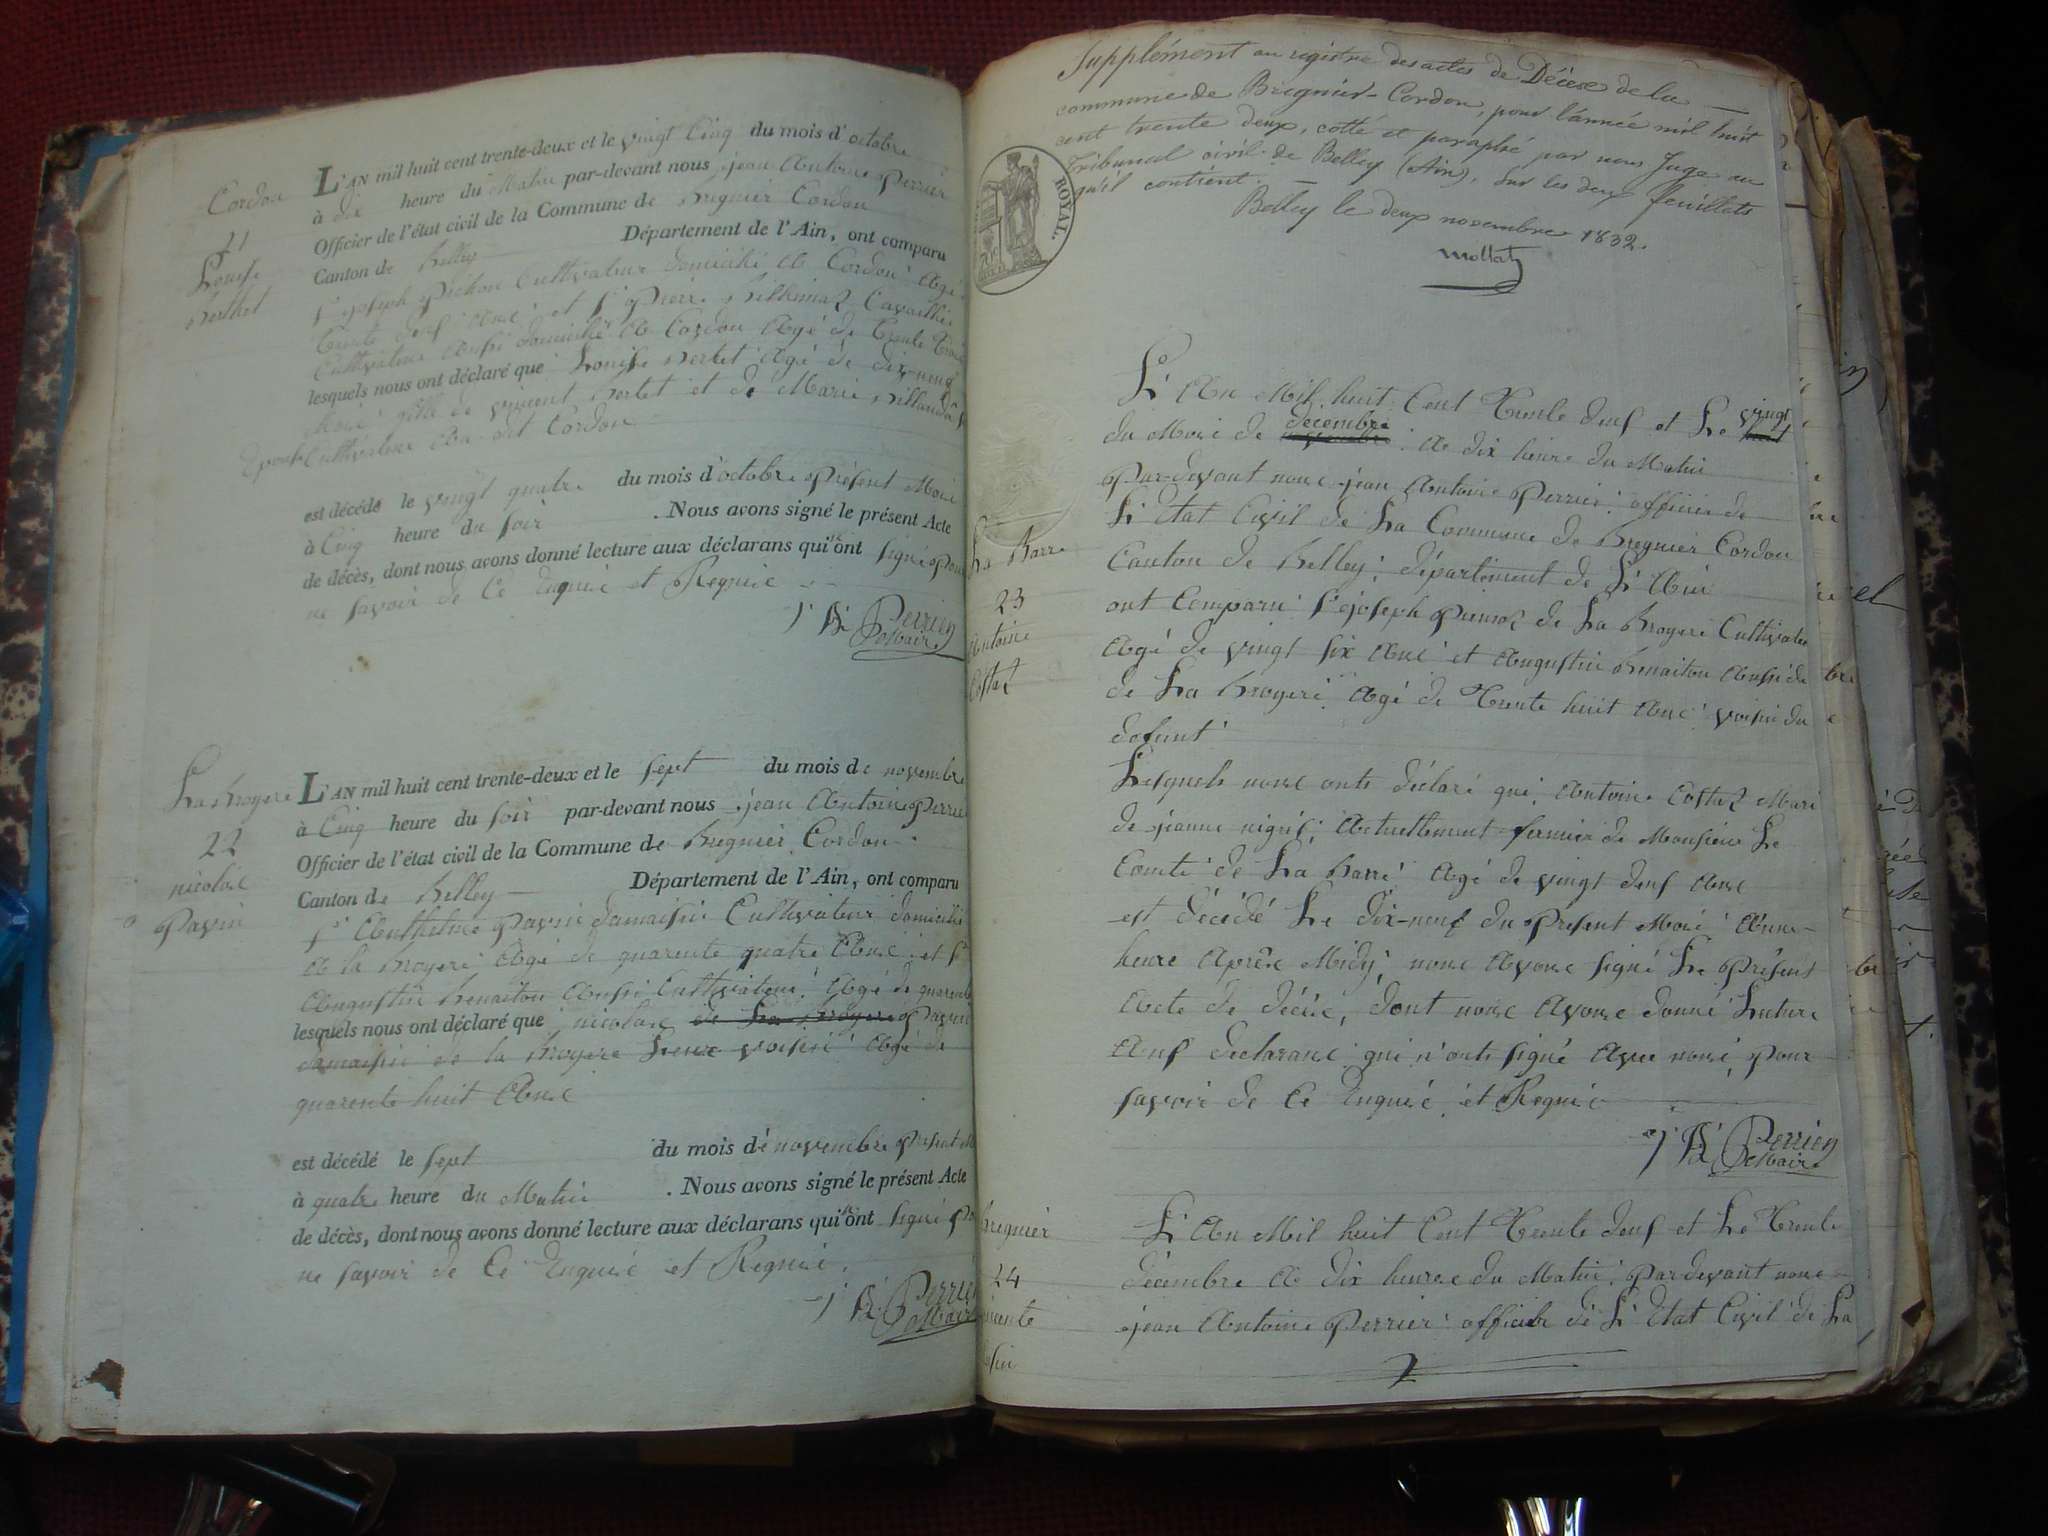 Cordon
21
Louise
Berthet
L'AN mil huit cent trente-deux et le vingt Cinq du mois d'octobre
à dix heure du Matin par-devant nous jean Antoine Perrier
Officier de l'état civil de la Commune de Bregnier Cordon
Canton de Belley Département de l'Ain, ont comparu
Sr joseph Pichon Cultivateur domicilié à Cordon Agé
trente deux Ans et Sr Pierre
Cultivateur Aussi domicilié à Cordon Agé de trente trois
lesquels nous ont déclaré que Louise Bertet Agé de dix-neuf
fille de vincent Bertet et de Marie
Cultivateur Cordon
est décédé le vingt quatre du mois d'octobre Présent Mois
à Cinq heure du soir . Nous avons signé le présent Acte
de décès, dont nous avons donné lecture aux déclarans qui n'ont signé Pour
ne savoir de Ce Enquis et Requis
j. A. Perrier
Maire
La Broyere
22
nicolas
Pavin
L'AN mil huit cent trente-deux et le sept du mois de novembre
à Cinq heure du soir par-devant nous jean Antoine Perrier
Officier de l'état civil de la Commune de Bregnier Cordon
Canton de Belley Département de l'Ain, ont comparu
Sr Anthelme Pavin damaisin Cultivateur domicilié
à la Broyere Agé de quarente quatre Ans et Sr
Augustin Benaiton Aussi Cultivateur Agé de quarente
lesquels nous ont déclaré que nicolas de La Broyere Pavin
damaisin de la Broyere Leur voisin Agé de
quarente huit Ans
est décédé le sept du mois de novembre Présent
à quatre heure du Matin . Nous avons signé le présent Acte
de décès, dont nous avons donné lecture aux déclarans qui n'ont signé
ne savoir de Ce Enquis et Requis.
j. A. Perrier
Maire
Supplément au registre des actes de Décès de la
commune de Bregnier-Cordon, pour l'année mil huit
cent trente deux, cotté et paraphé par nous Juge au
Tribunal civil de Belley (Ain), sur les deux feuillets
qu'il contient.
Belley le deux novembre 1832.
Mollat
ROYAL.
La Barre
23
Antoine
Costaz
L'An Mil huit Cent Trente deux et Le vingt
du Mois de décembre à dix heure du Matin
Par-devant nous jean Antoine Perrier officier de
L'Etat Civil de La Commune de Bregnier Cordon
Canton de Belley, département de L'Ain
ont Comparu Sr joseph de La Broyere Cultivateur
Agé de vingt six Ans et Augustin Benaiton Aussi de
de La Broyere Agé de Trente huit Ans voisin du
defunt
Lesquels nous ont déclaré que Antoine Costaz Mari
de jeanne Actuellement fermier de Monsieur Le
Comte de La Barre Agé de vingt deux Ans
est décédé Le Dix-neuf du Present Mois
heure Après Midy, nous Avons signé Le Présent
Acte de décès, dont nous Avons donné Lecture
Aux declarans qui n'ont signé Avec nous, Pour
savoir de Ce Enquis et Requis
j. A. Perrier
Maire
Bregnier
24
L'An Mil huit Cent Trente deux et Le Trente
décembre à dix heures du Matin Par devant nous
jean Antoine Perrier officier de L'Etat Civil de La